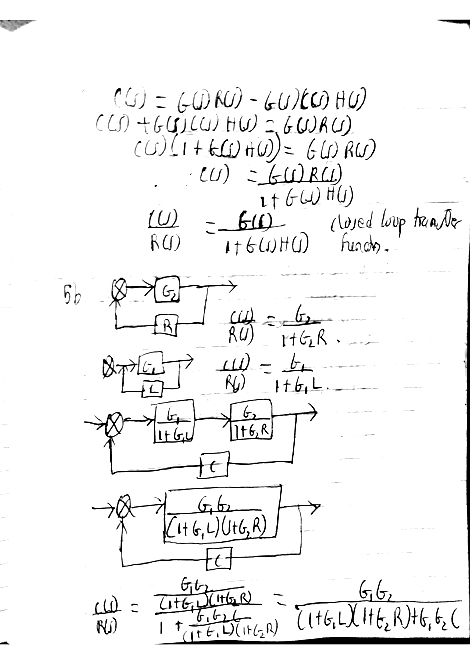 C(s) = G(s)R(s) - G(s)C(s)H(s)
C(s) + G(s)C(s)H(s) = G(s)R(s)
C(s)(1+G(s)H(s)) = G(s)R(s)
C(s) = G(s)R(s) / 1+G(s)H(s)
C(s) / R(s) = G(s) / 1+G(s)H(s) closed loop transfer
functn.
5b
G2
R
C(s) / R(s) = G2 / 1+G2R.
G1
L
C(s) / R(s) = G1 / 1+G1L.
G1 / 1+G1L
G2 / 1+G2R
C
G1G2 / (1+G1L)(1+G2R)
C
C(s) / R(s) = G1G2 / (1+G1L)(1+G2R) / 1 + G1G2C / (1+G1L)(1+G2R) = G1G2 / (1+G1L)(1+G2R)+G1G2C